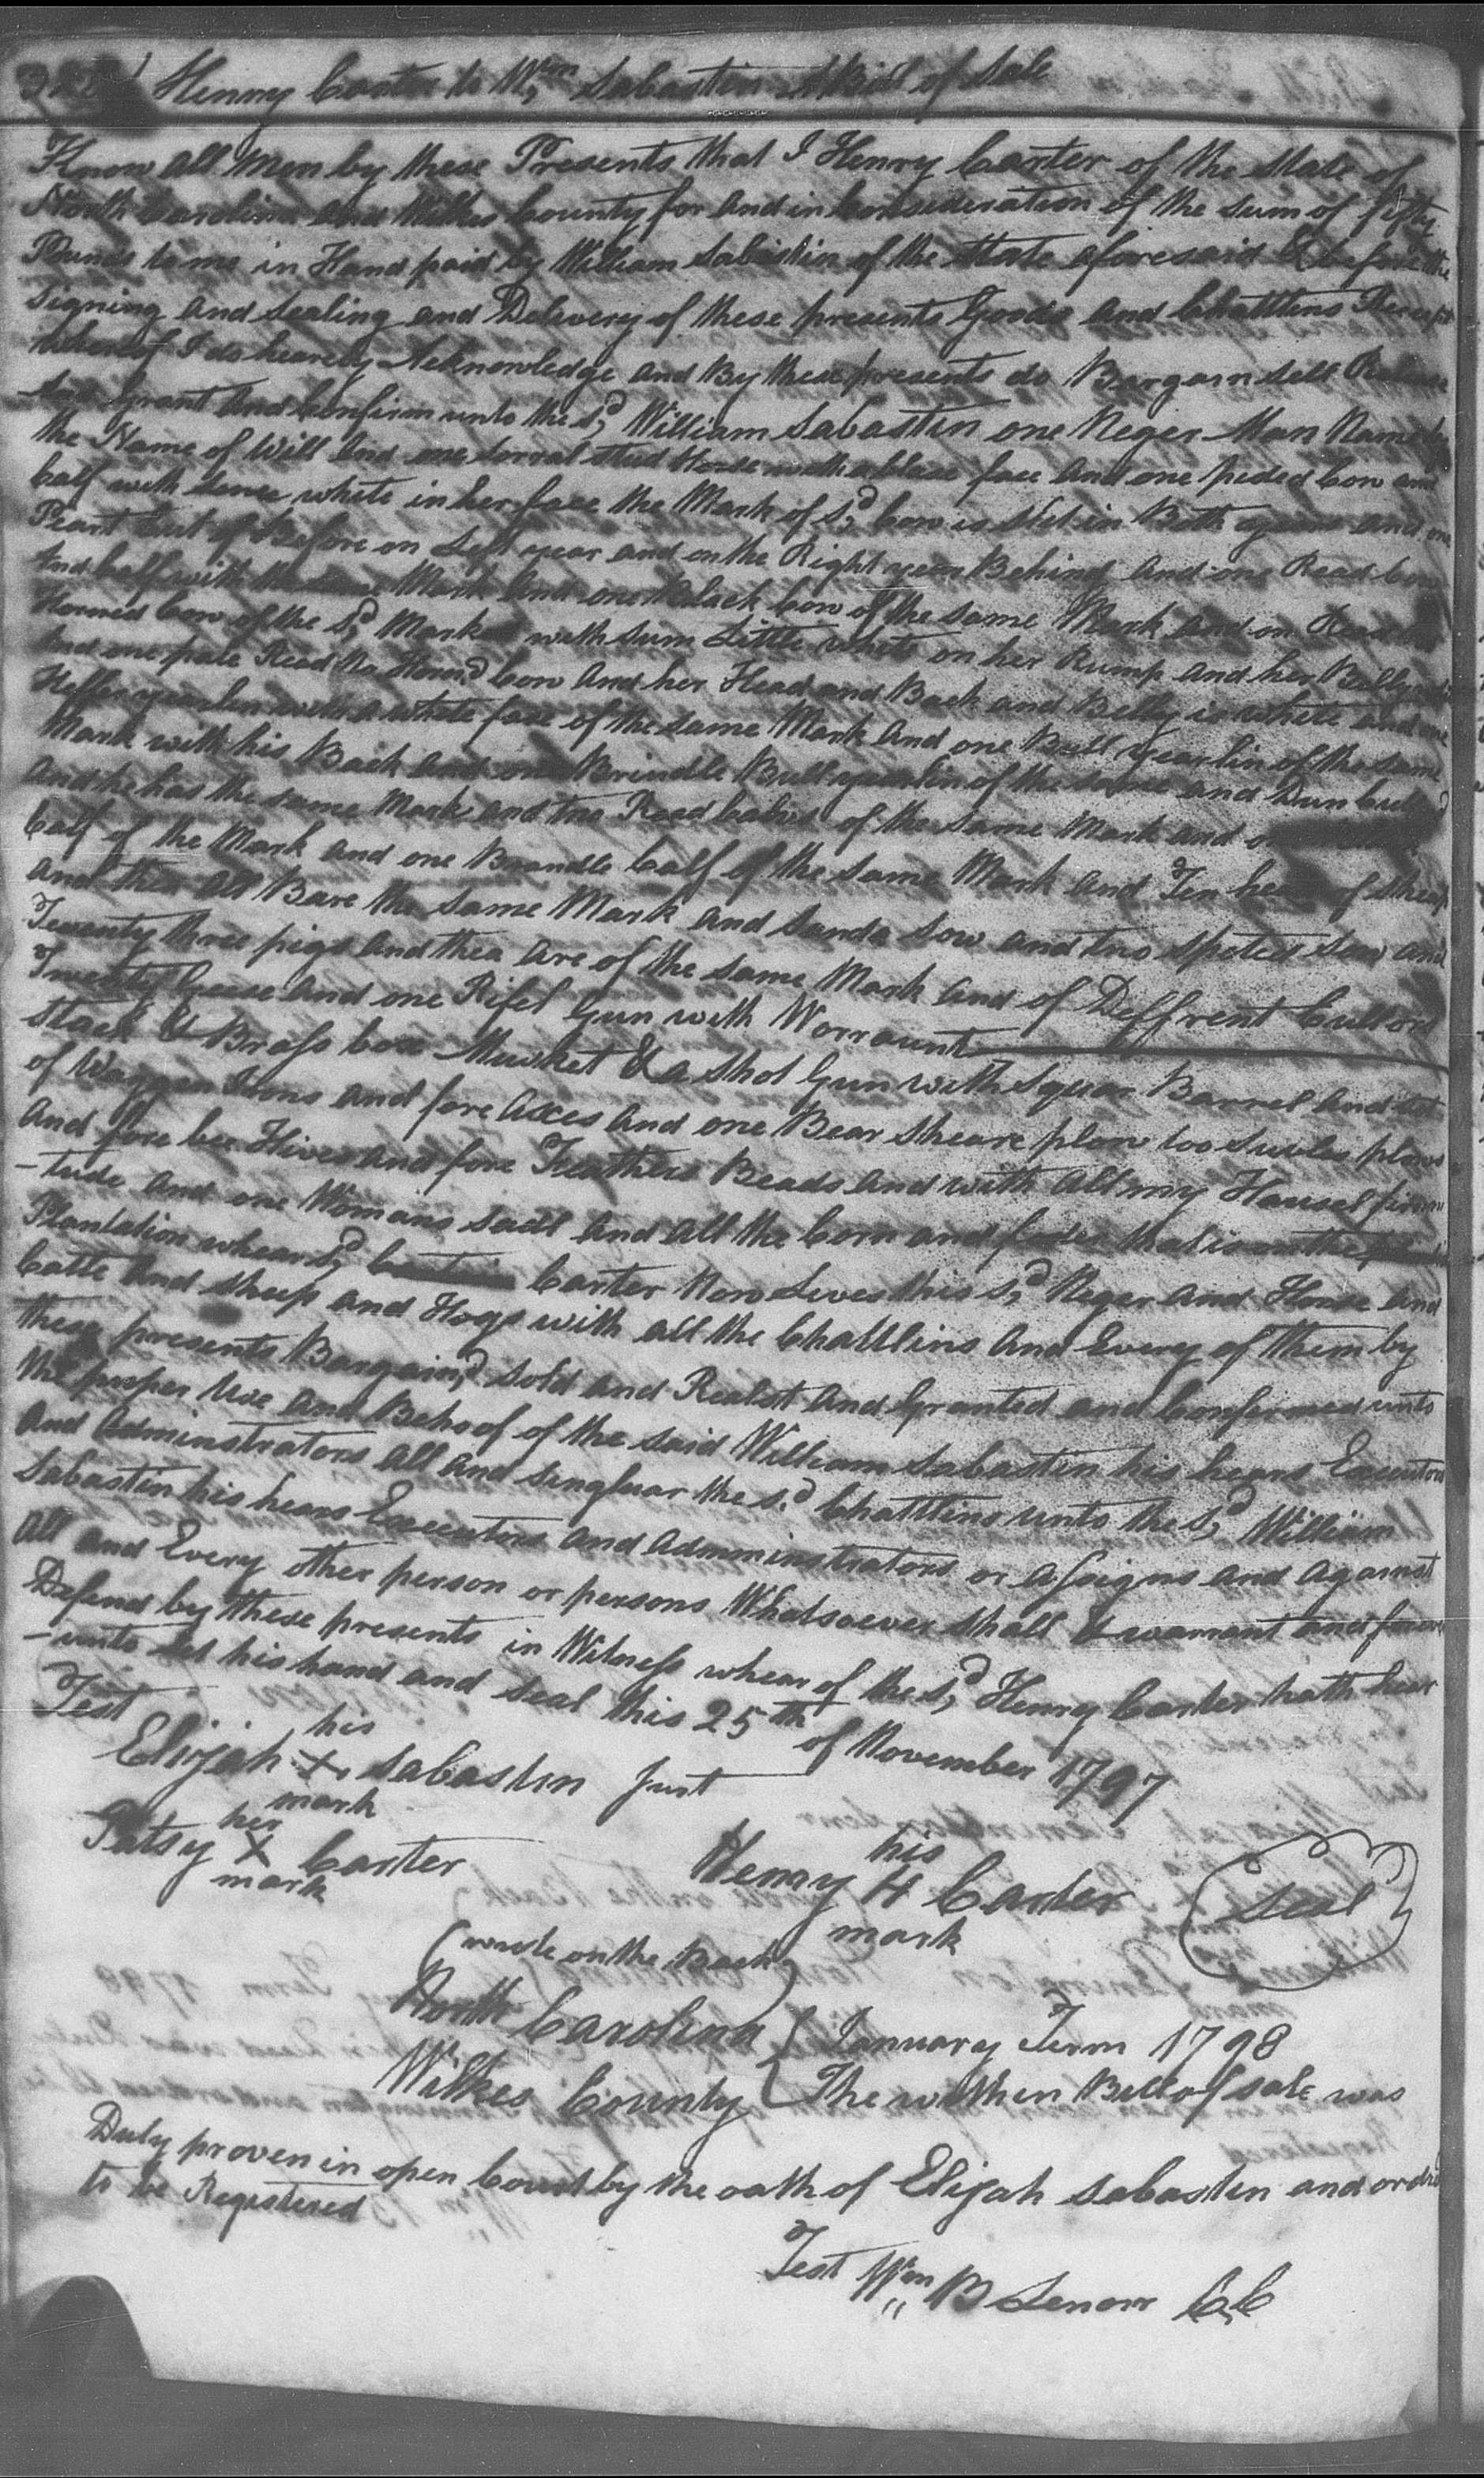 Henry Carter to Wm Sabastin A Bill of Sale
Know all Men by these Presents that I Henry Carter of the State of
North Carolina and Wilkes County for and in Consideration of the sum of fifty
Pounds to me in Hand paid by William Sabastin of the State aforesaid & before the
Signing and Sealing and Delevery of these presents Goods and Chattlens
whereof I do heareby Acknowledge and By these presents do Bargain sell Release
And Grant and Confirm unto the sd William Sabastin one Neger Man Named by
the Name of Will And one sorral Stud Horse with a blaze face and one pided Cow and
Calf with sum white in her face the Mark of sd Cow is slit in Both years and one
Peant Cut of Before on Left year and on the Right year Behind and one Read Cow
And Calf with the Mark And one Black Cow of the same Mark and on Read
Horned Cow of the sd Mark with sum Little white on her Rump and her Belly
And one pale Read No Hornd Cow And her Head and Back and Belly is white and one
Heffer yearlin with a white face of the same Mark And one Bull yearlin of the same
Mark with his Back and one Brindle Bull yearlin of the same and Dun
And he has the same Mark and two Read Calves of the same Mark and
Calf of the Mark and one Brandle Calf of the same Mark and Ten head of Sheap
and thea all Bare the same Mark and Sanda Sow and two spoted Sow and
Twenty three pigs and thea are of the same Mark and of Deffrent Cullors
Twenty Geese and one Rifel Gun with Worraunt
Stack & Brass box Musket & a Shot Gun with Squar Barrel and set
of Waggan Irons and fore Axes and one Bear Sheare plow too Suvles plows
And fore bee Hives and fore Feathers Beads and with all my Housel firni
-ture and one Womans Sadl And all the Corn and foder that is on the
Plantation whear sd Carter Now Lives this sd Neger and Horse and
Catte and Sheep and Hogs with all the Chattlins and Every of them by
these presents Bargaind sold and Realest And Granted and Confermed unto
the proper Use and Behoof of the said William Sabastin his hears Executors
and Adminstrators all and Singluar the sd Chattlins unto the sd William
Sabastin his hears Executors and Adminnistrators or assigns and against
all and Every other person or persons Whatsoever Shall & warrant and forever
Defend by these presents in Witness whear of the sd Henry Carter hath hear
-unto set his hand and seal this 25th of November 1797
Test
his
Elijah X Sabastin Jurt
mark
her
Patsy X Carter
mark
his
Henry H Carter
mark
Seal
(wrote on the Back)
North Carolina January Term 1798
Wilkes County The within Bill of sale was
Duly proven in open Court by the oath of Elijah Sabastin and ordrd
to be Registered
Test Wm B Lenoir CC